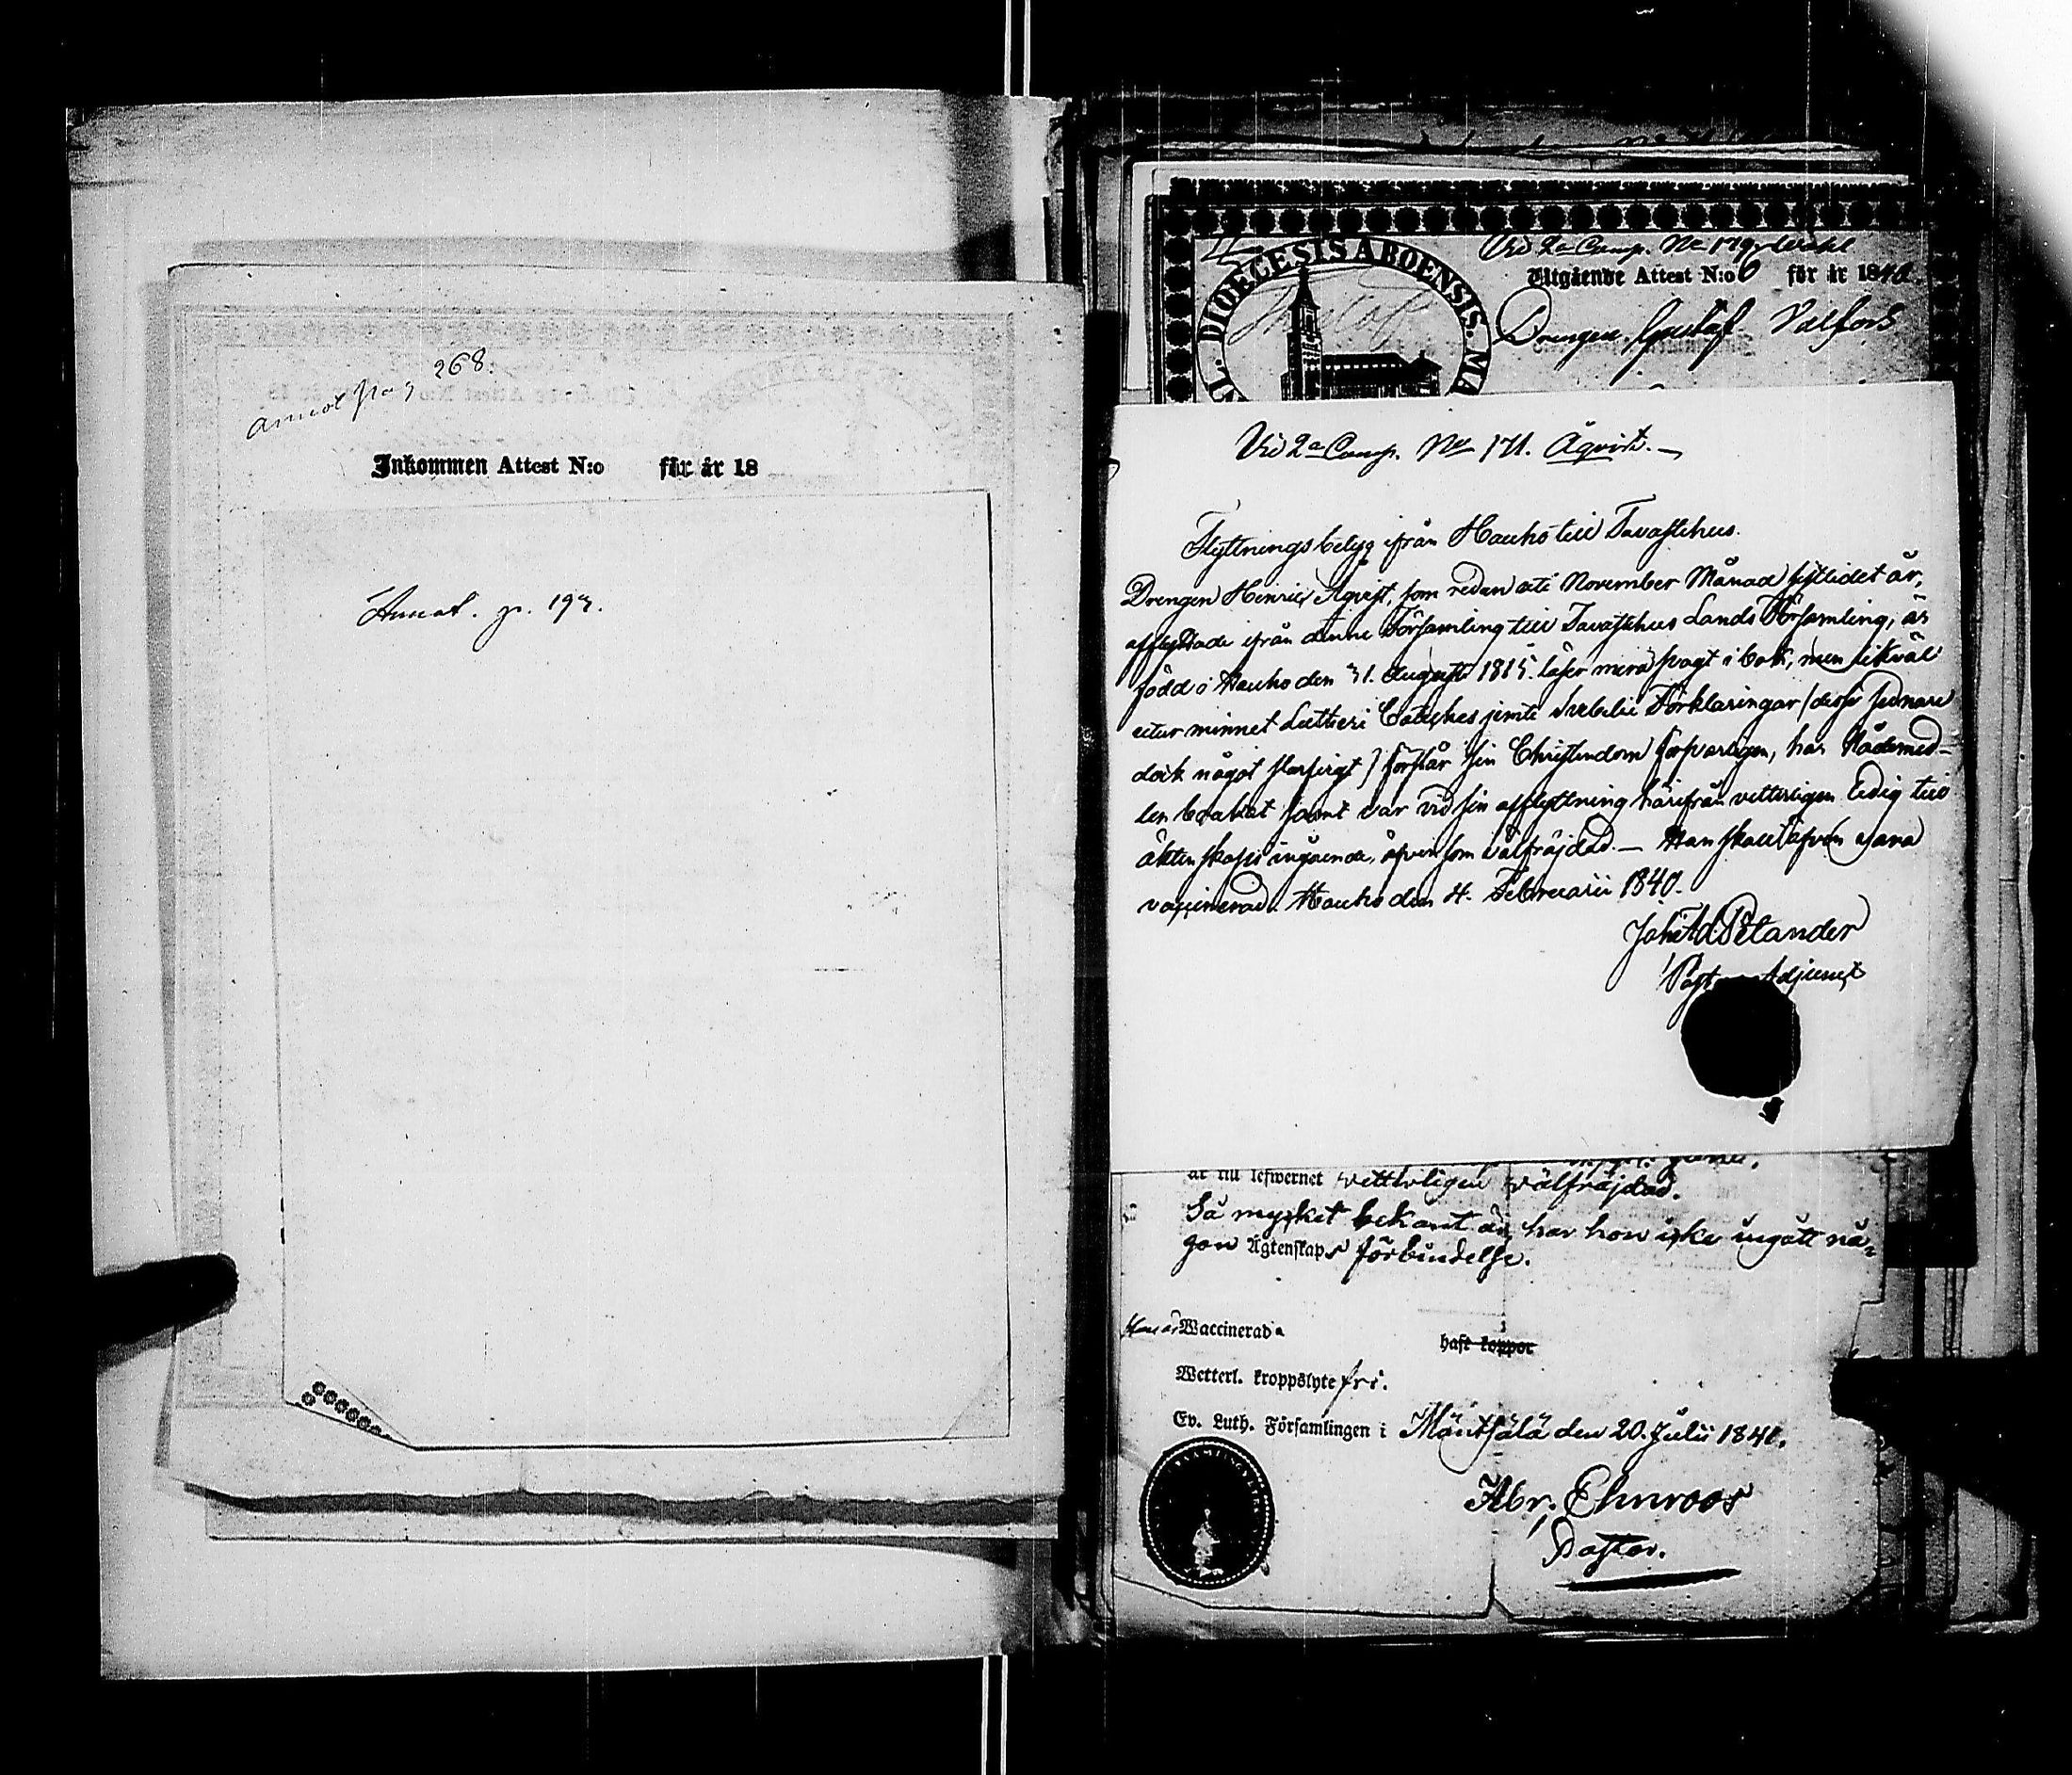 annot pag 268.
Inkommen Attest N:o för år 18
Annot. p. 193.
DIOECESIS ABOENSIS. MA
Vid 2a Comp. No 179
Utgående Attest N:o 6 för år 1840.
Drengen Gustaf Valfors
Vid 2a Comp. No 171. Äqvist.
Flyttningsbetyg ifrån Hauho till Tavastehus.
Drengen Henric Äqvist, som redan uti November Månad sistlidet år,
afflyttade ifrån denne Församling till Tavastehus Lands Församling, är
född i Hauho den 31. Augusti 1815. läser mera svagt i bok, men likväl
utur minnet Lutheri Cateches jemte Svebelii Förklaringar (desse sednare
dock något  ) förstår sin Christendom försvarligen, har Nådemed-
len brukat samt var vid sin afflyttning härifrån vitterligen ledig till
äktenskaps ingående, äfvensom välfräjdad. — Han skall äfven vara
vaccinerad. Hauho den 4. Februarii 1840.
Joh. Ad. Pelander
Past. Adjunct
är till lefwernet vitterligen välfräjdad.
Så mycket bekant är, har hon icke ingått nå-
gon Ägtenskaps förbindelse.
Hon är Waccinerad haft koppor
Wetterl. kroppslyte fri.
Ev. Luth. Församlingen i Mäntsälä den 20. Julii 1840.
Abr. Ehnroos
Pastor.